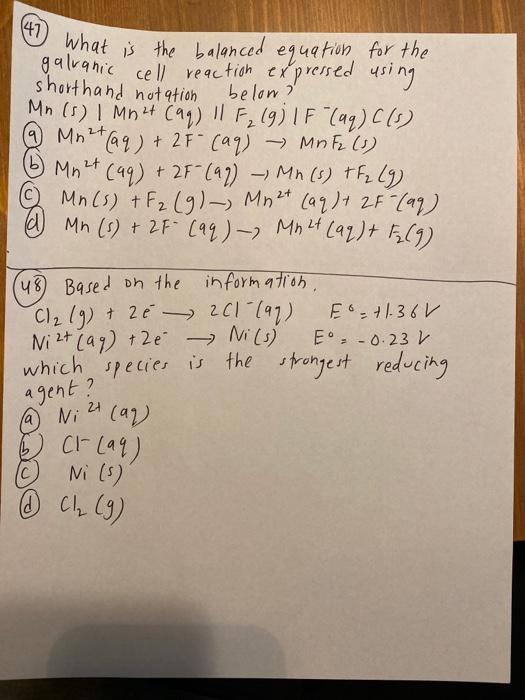 47 What is the balanced equation for the
galvanic cell reaction expressed using
shorthand notation below?
Mn (s) | Mn²⁺ (aq) || F₂ (g) | F⁻(aq) C(s)
a Mn²⁺(aq) + 2F⁻ (aq) → MnF₂ (s)
b Mn²⁺ (aq) + 2F⁻(aq) → Mn (s) + F₂ (g)
c Mn(s) + F₂ (g) → Mn²⁺ (aq) + 2F⁻(aq)
d Mn (s) + 2F⁻ (aq) → Mn²⁺(aq) + F₂(g)
48 Based on the information,
Cl₂ (g) + 2e⁻ → 2Cl⁻(aq) E° = +1.36V
Ni²⁺(aq) + 2e⁻ → Ni(s) E° = -0.23 V
which species is the strongest reducing
agent?
a Ni²⁺ (aq)
b Cl⁻ (aq)
c Ni (s)
d Cl₂ (g)